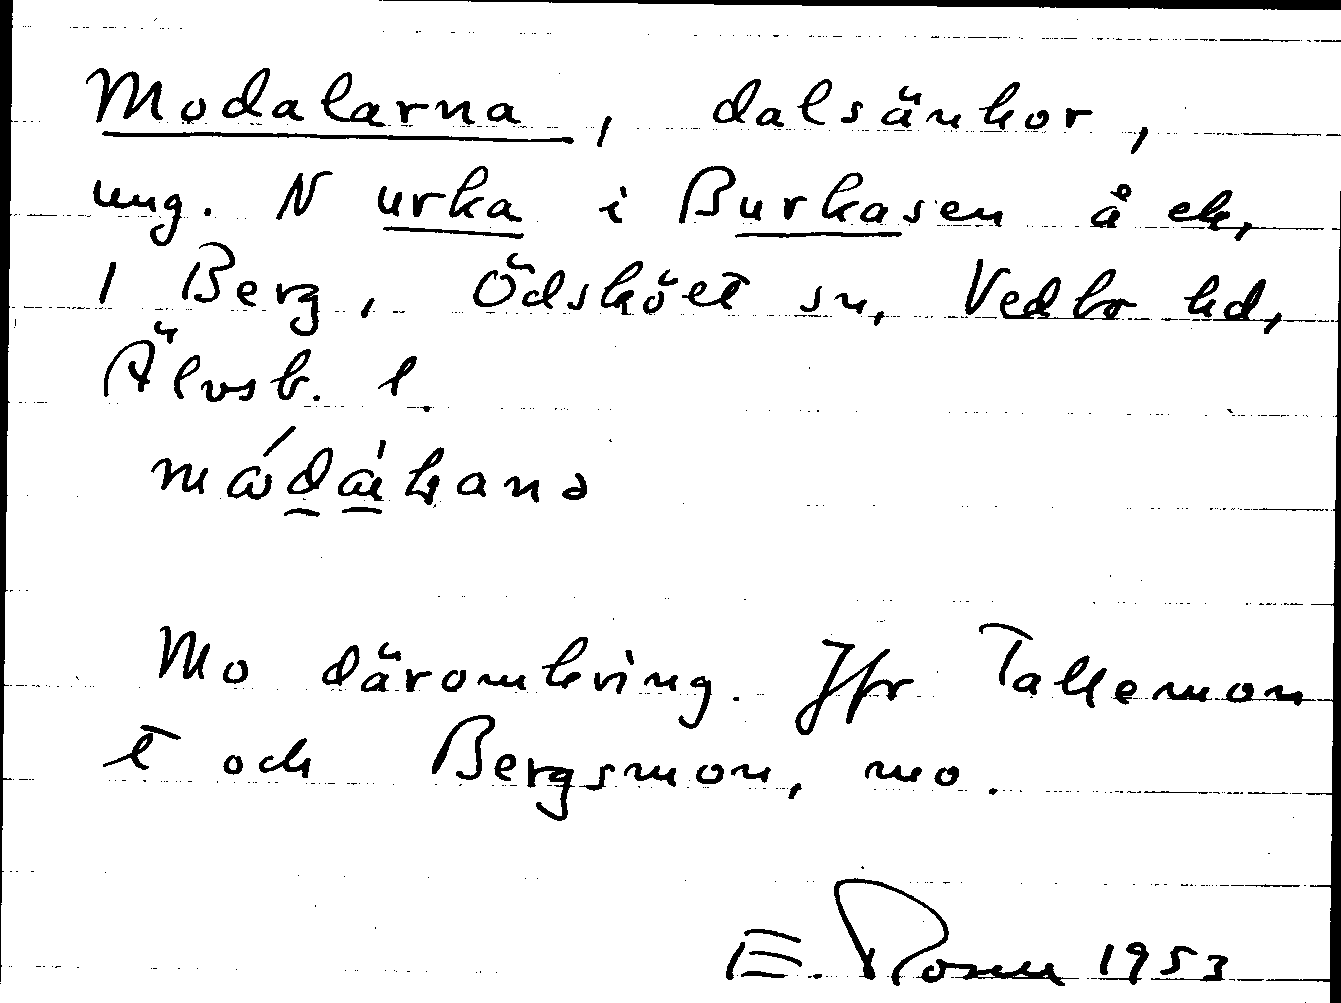 Modalarna, dalsänkor,
ung. N urka i Burkasen å ek,
1 Berg, Ödskölt sn, Vedbo hd,
Älvsb. l.
Mo däromkring. Jfr Tallemon
t och Bergsmon, mo.
E. Rosell 1953